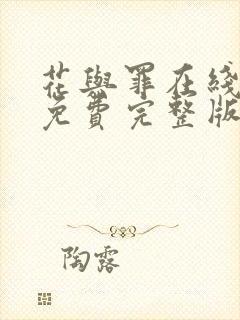 花與罪在綫
免費完整版
陶露